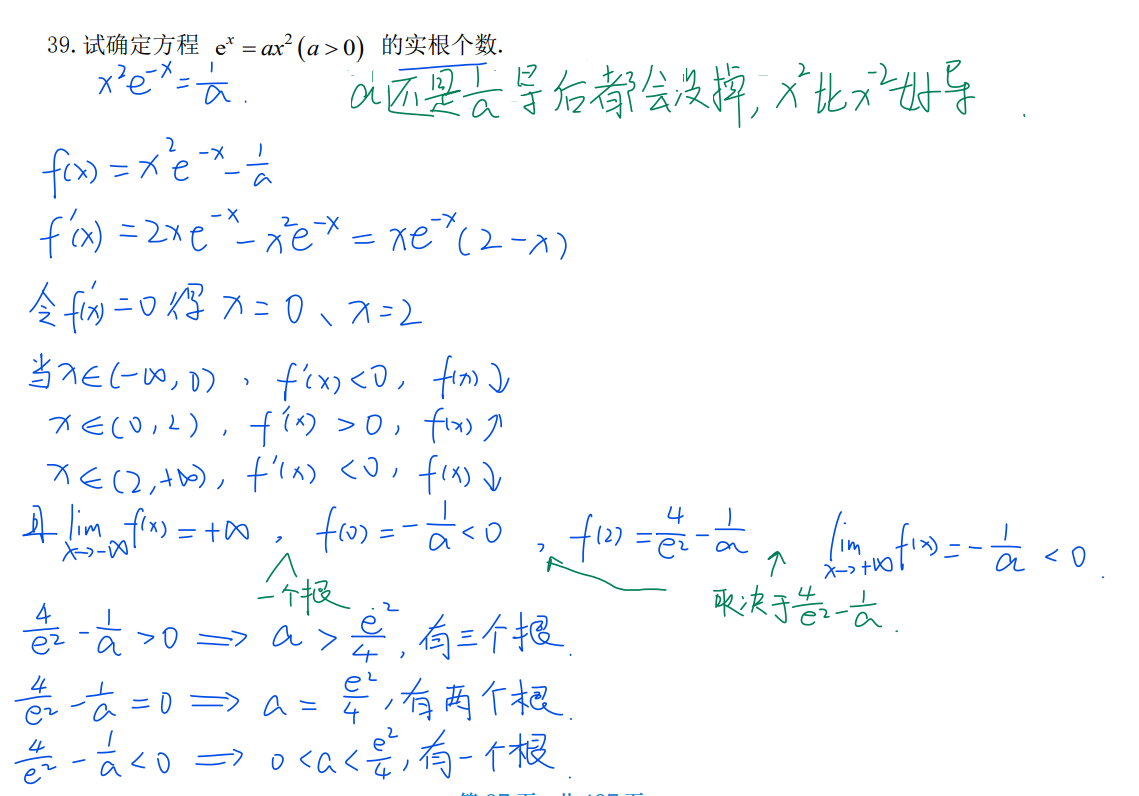 39. 试确定方程 e^x = ax^2 (a > 0) 的实根个数.
x^2e^{-x} = 1/a.
a还是1/a导后都会没掉, x^2比x^{-2}好导.
f(x) = x^2e^{-x} - 1/a
f'(x) = 2xe^{-x} - x^2e^{-x} = xe^{-x}(2-x)
令f'(x) = 0得 x = 0、x = 2
当x∈(-∞, 0), f'(x) < 0, f(x)↓
x∈(0, 2), f'(x) > 0, f(x)↗
x∈(2, +∞), f'(x) < 0, f(x)↓
且 lim_{x→-∞} f(x) = +∞, f(0) = -1/a < 0, f(2) = 4/e^2 - 1/a lim_{x→+∞} f(x) = -1/a < 0.
一个根
取决于4/e^2 - 1/a.
4/e^2 - 1/a > 0 ⟹ a > e^2/4, 有三个根.
4/e^2 - 1/a = 0 ⟹ a = e^2/4, 有两个根.
4/e^2 - 1/a < 0 ⟹ 0 < a < e^2/4, 有一个根.